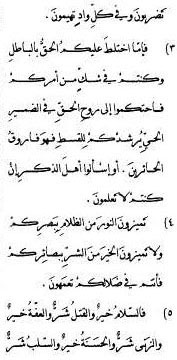 تضربون وفي كل واد تهيمون .
(٣ فإما اختلط عليكم الحق بالباطل
وكنتم في شك من أمركم
فاحتكموا إلى روح الحق في الضمير
الحي يرشدكم للقسط فهو فاروق
الحائرين . أو اسألوا أهل الذكر إن
كنتم لا تعلمون .
(٤ تميزون النور من الظلام ببصركم
ولا تميزون الخير من الشر ببصائركم
فأنتم في ضلالكم تعمهون .
(٥ فالسلام خير والقتل شر والعفة خير
والزنى شر والحسنة خير والسلب شر